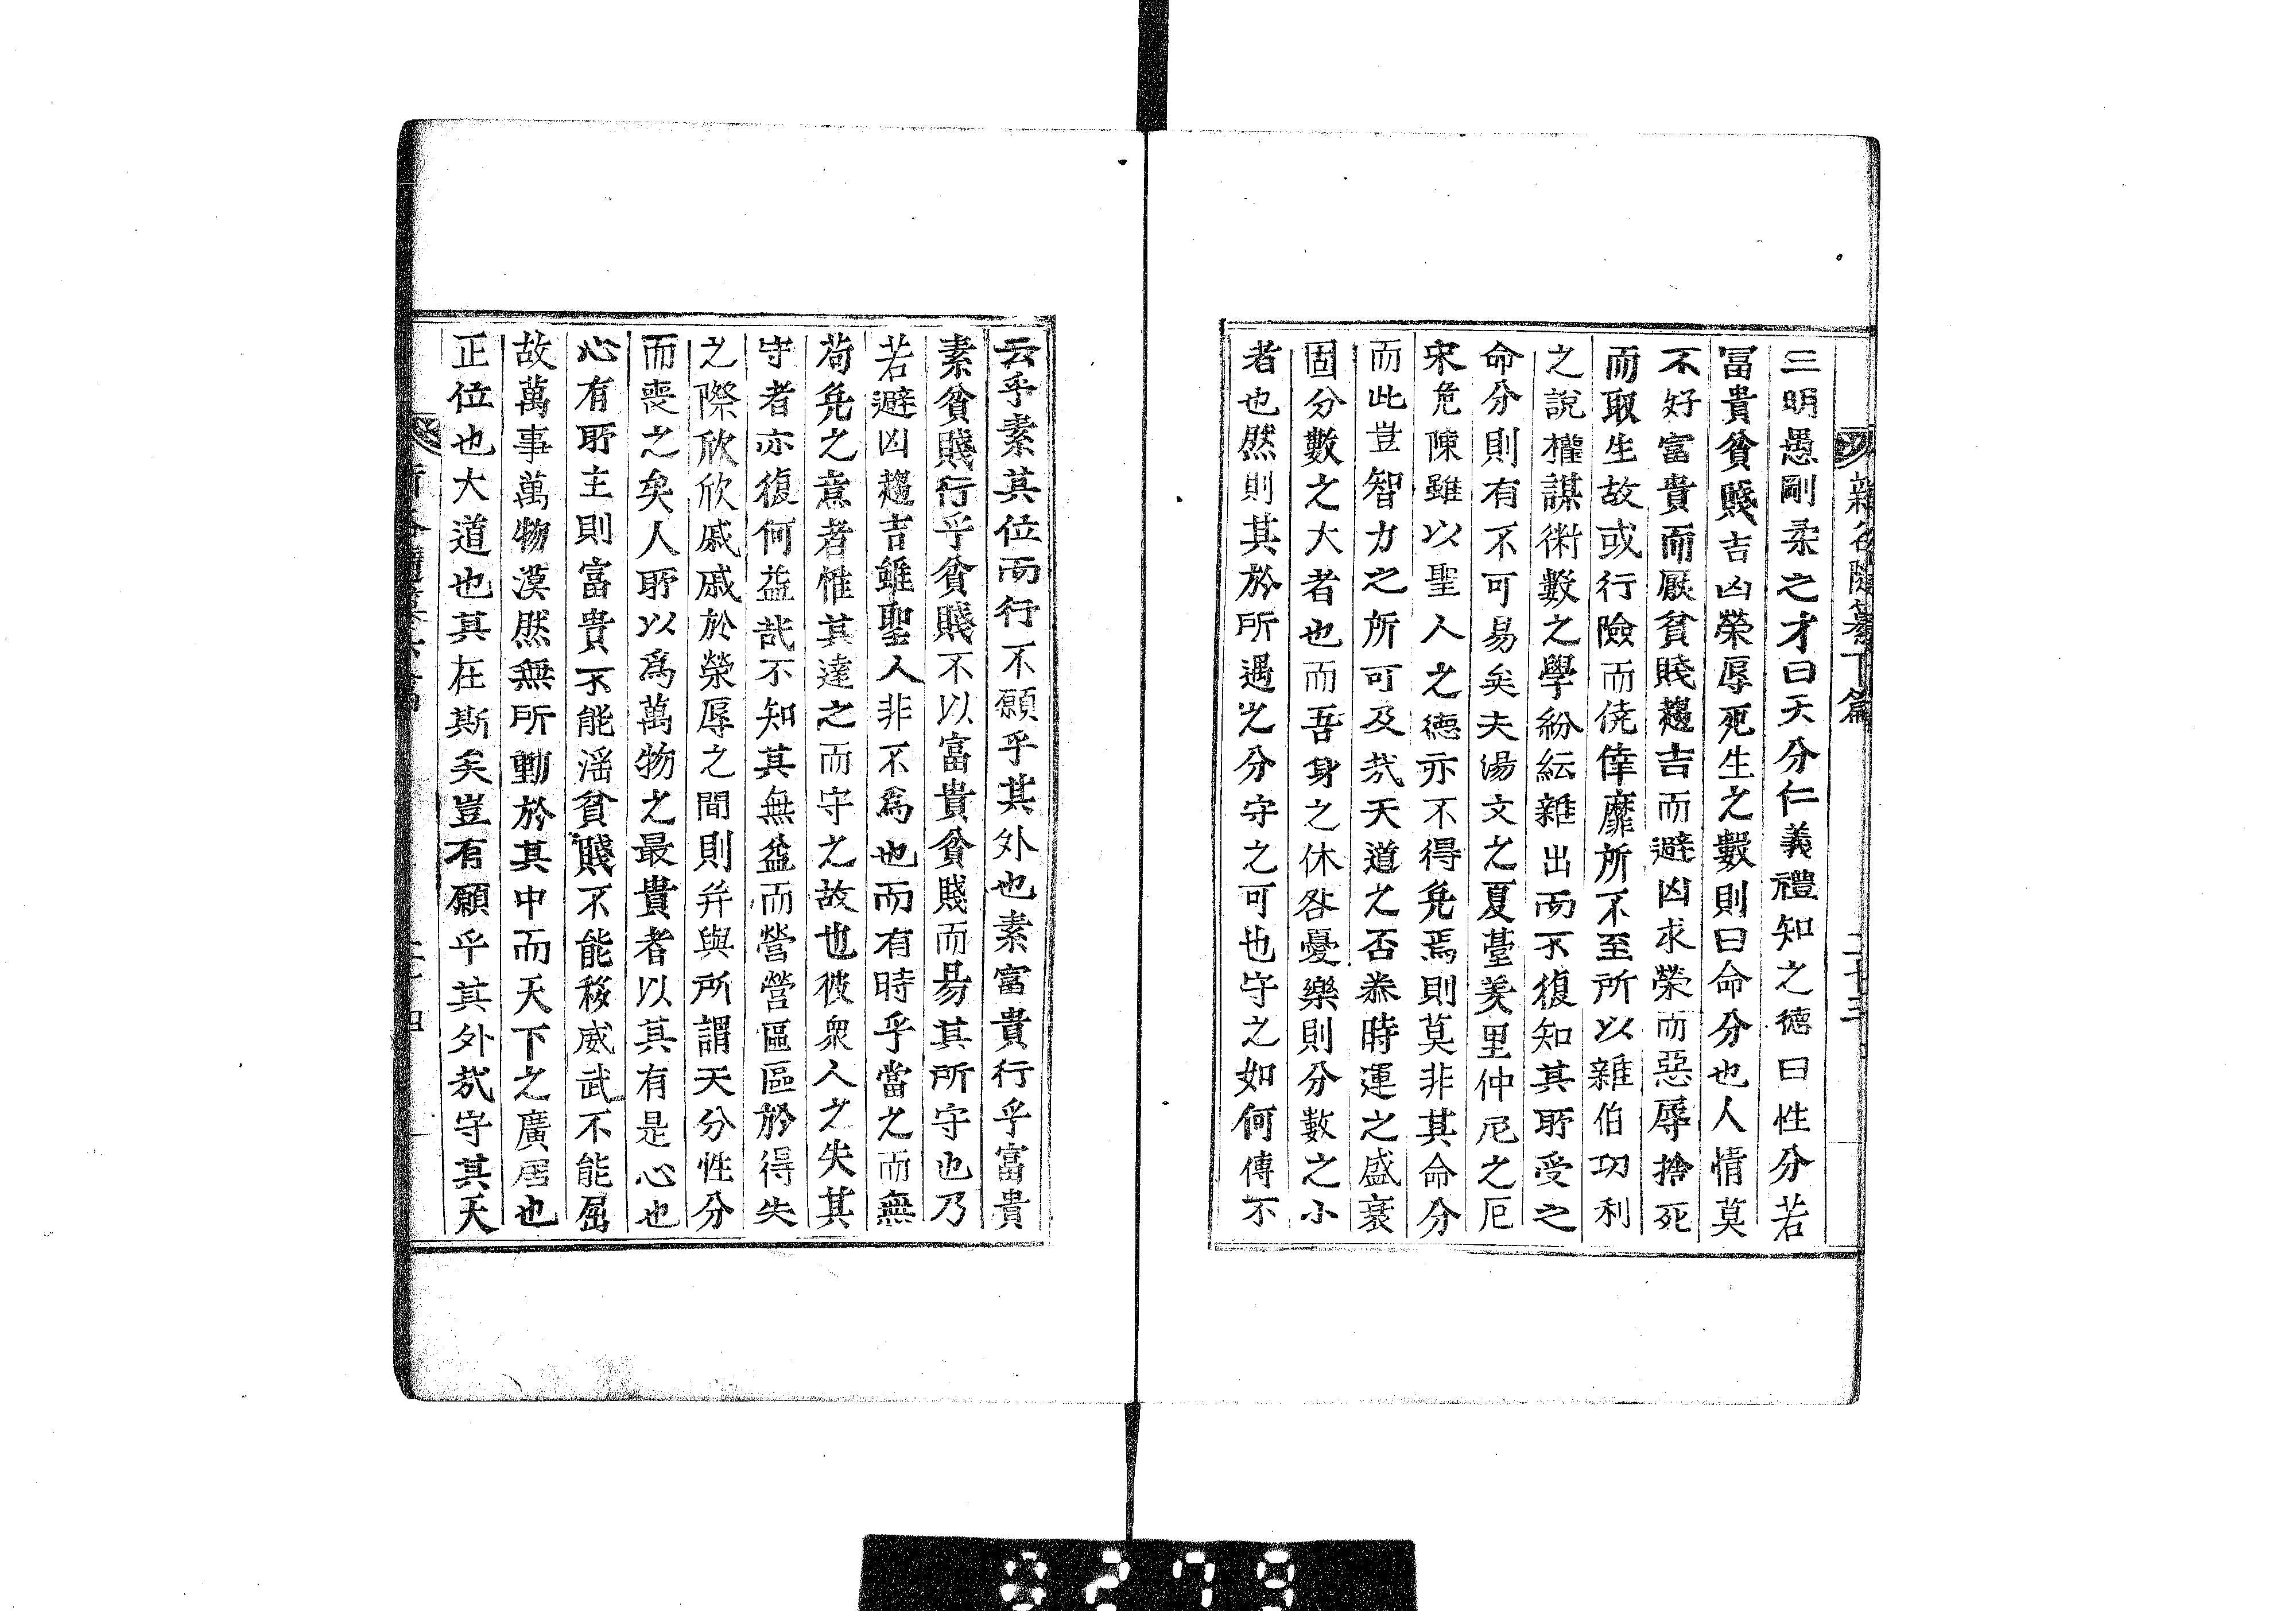 三明愚剛柔之才曰天分仁義禮知之德曰性分若
冨貴貧賤吉凶榮辱死生之數則曰命分也人情莫
不好富貴而厭貧賤趨吉而避凶求榮而惡辱捨死
而取生故或行險而僥倖靡所不至所以雜伯功利
之說權謀術數之學紛紜雜出而不復知其所受之
命分則有不可易矣夫湯文之夏臺羑里仲尼之厄
宋危陳雖以聖人之德亦不得免焉則莫非其命分
而此豈智力之所可及哉天道之否泰時運之盛衰
固分數之大者也而吾身之休咎憂樂則分數之小
者也然則其於所遇之分守之可也守之如何傳不
云乎素其位而行不願乎其外也素富貴行乎富貴
素貧賤行乎貧賤不以富貴貧賤而易其所守也乃
若避凶趨吉雖聖人非不爲也而有時乎當之而無
苟免之意者惟其達之而守之故也彼衆人之失其
守者亦復何益哉不知其無益而營營區區於得失
之際欣欣戚戚於榮辱之間則并與所謂天分性分
而喪之矣人所以爲萬物之最貴者以其有是心也
心有所主則富貴不能滛貧賤不能移威武不能屈
故萬事萬物漠然無所動於其中而天下之廣居也
正位也大道也其在斯矣豈有願乎其外哉守其天
0279